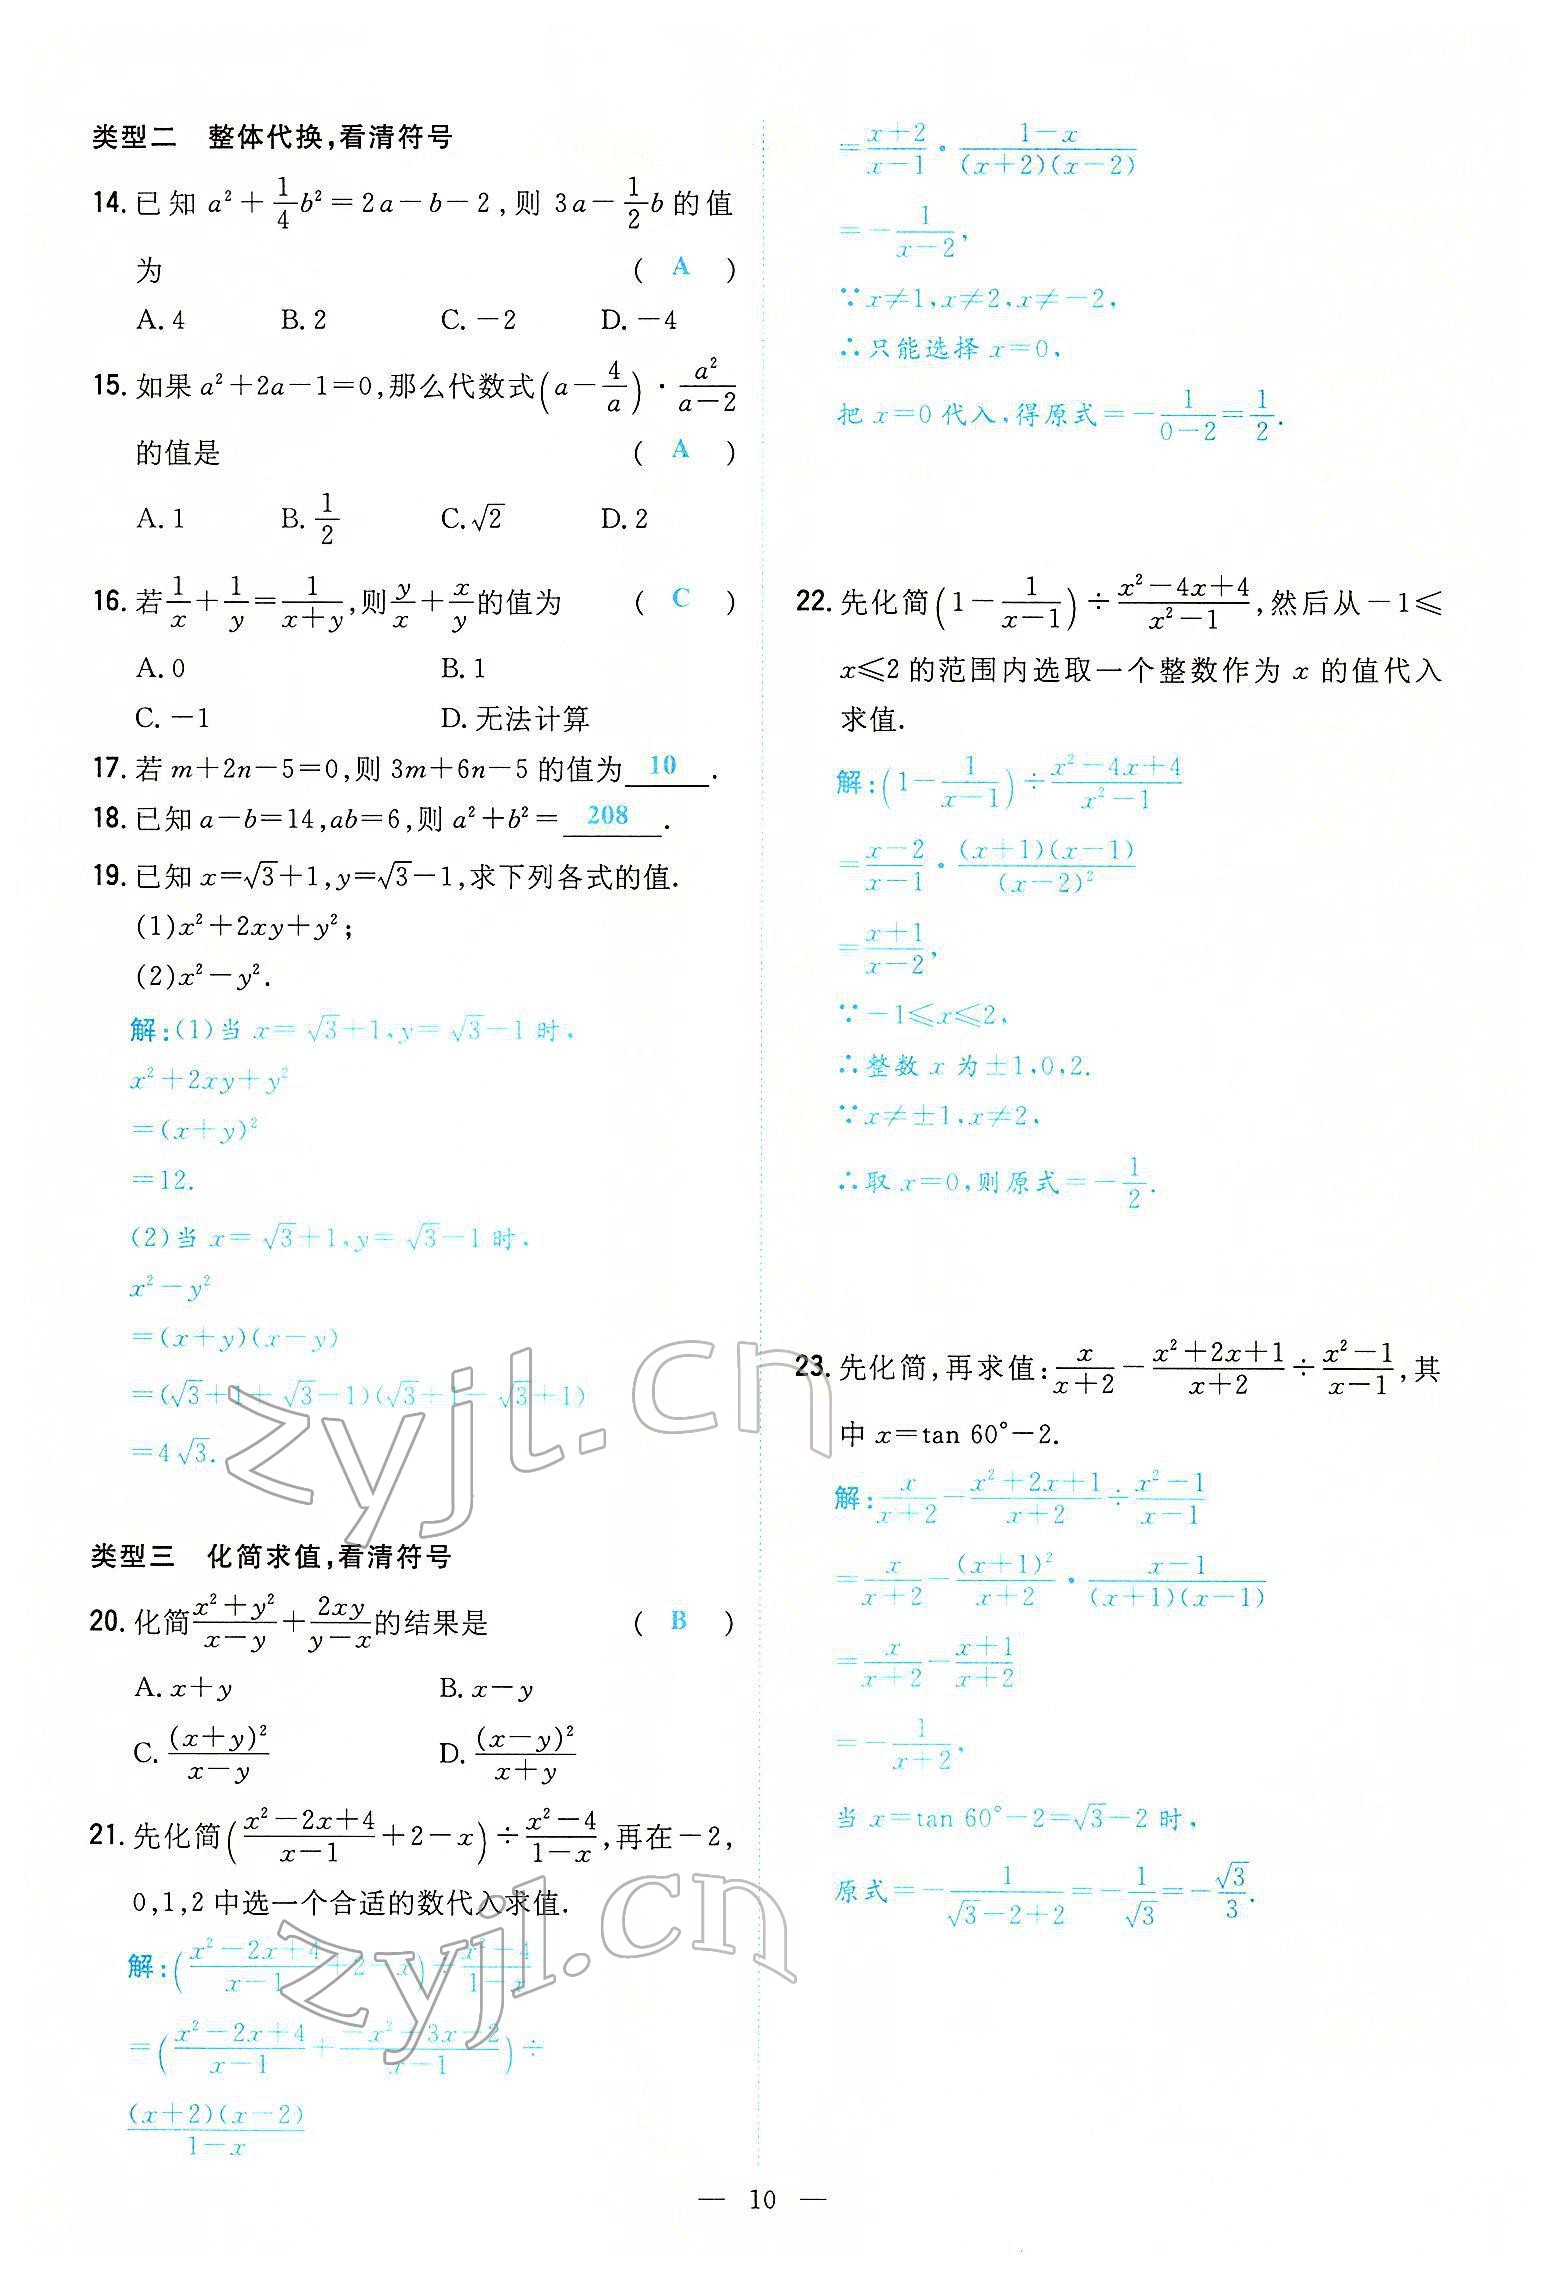 类型二 整体代换,看清符号
14. 已知 a²+1/4b²=2a-b-2,则 3a-1/2b 的值
为 ( A )
A. 4 B. 2 C. -2 D. -4
15. 如果 a²+2a-1=0,那么代数式(a-4/a)·a²/(a-2)
的值是 ( A )
A. 1 B. 1/2 C. √2 D. 2
16. 若1/x+1/y=1/(x+y),则y/x+x/y的值为 ( C )
A. 0 B. 1
C. -1 D. 无法计算
17. 若 m+2n-5=0,则 3m+6n-5 的值为 10 .
18. 已知 a-b=14,ab=6,则 a²+b²= 208 .
19. 已知 x=√3+1,y=√3-1,求下列各式的值.
(1)x²+2xy+y²;
(2)x²-y².
解:(1)当 x=√3+1,y=√3-1 时,
x²+2xy+y²
=(x+y)²
=12.
(2)当 x=√3+1,y=√3-1 时,
x²-y²
=(x+y)(x-y)
=(√3+1+√3-1)(√3+1-√3+1)
=4√3.
类型三 化简求值,看清符号
20. 化简(x²+y²)/(x-y)+2xy/(y-x)的结果是 ( B )
A. x+y B. x-y
C. (x+y)²/(x-y) D. (x-y)²/(x+y)
21. 先化简((x²-2x+4)/(x-1)+2-x)÷(x²-4)/(1-x),再在-2,
0,1,2 中选一个合适的数代入求值.
解:((x²-2x+4)/(x-1)+2-x)÷(x²-4)/(1-x)
=((x²-2x+4)/(x-1)+(-x²+3x-2)/(x-1))÷
(x+2)(x-2)/(1-x)
=(x+2)/(x-1)·(1-x)/((x+2)(x-2))
=-1/(x-2),
∵x≠1,x≠2,x≠-2,
∴只能选择 x=0,
把 x=0 代入,得原式=-1/(0-2)=1/2.
22. 先化简(1-1/(x-1))÷(x²-4x+4)/(x²-1),然后从-1≤
x≤2 的范围内选取一个整数作为 x 的值代入
求值.
解:(1-1/(x-1))÷(x²-4x+4)/(x²-1)
=(x-2)/(x-1)·(x+1)(x-1)/(x-2)²
=(x+1)/(x-2),
∵-1≤x≤2,
∴整数 x 为±1,0,2.
∵x≠±1,x≠2,
∴取 x=0,则原式=-1/2.
23. 先化简,再求值:x/(x+2)-(x²+2x+1)/(x+2)÷(x²-1)/(x-1),其
中 x=tan 60°-2.
解:x/(x+2)-(x²+2x+1)/(x+2)÷(x²-1)/(x-1)
=x/(x+2)-(x+1)²/(x+2)·(x-1)/((x+1)(x-1))
=x/(x+2)-(x+1)/(x+2)
=-1/(x+2),
当 x=tan 60°-2=√3-2 时,
原式=-1/(√3-2+2)=-1/√3=-√3/3.
zyjl.cn
zyjl.cn
— 10 —